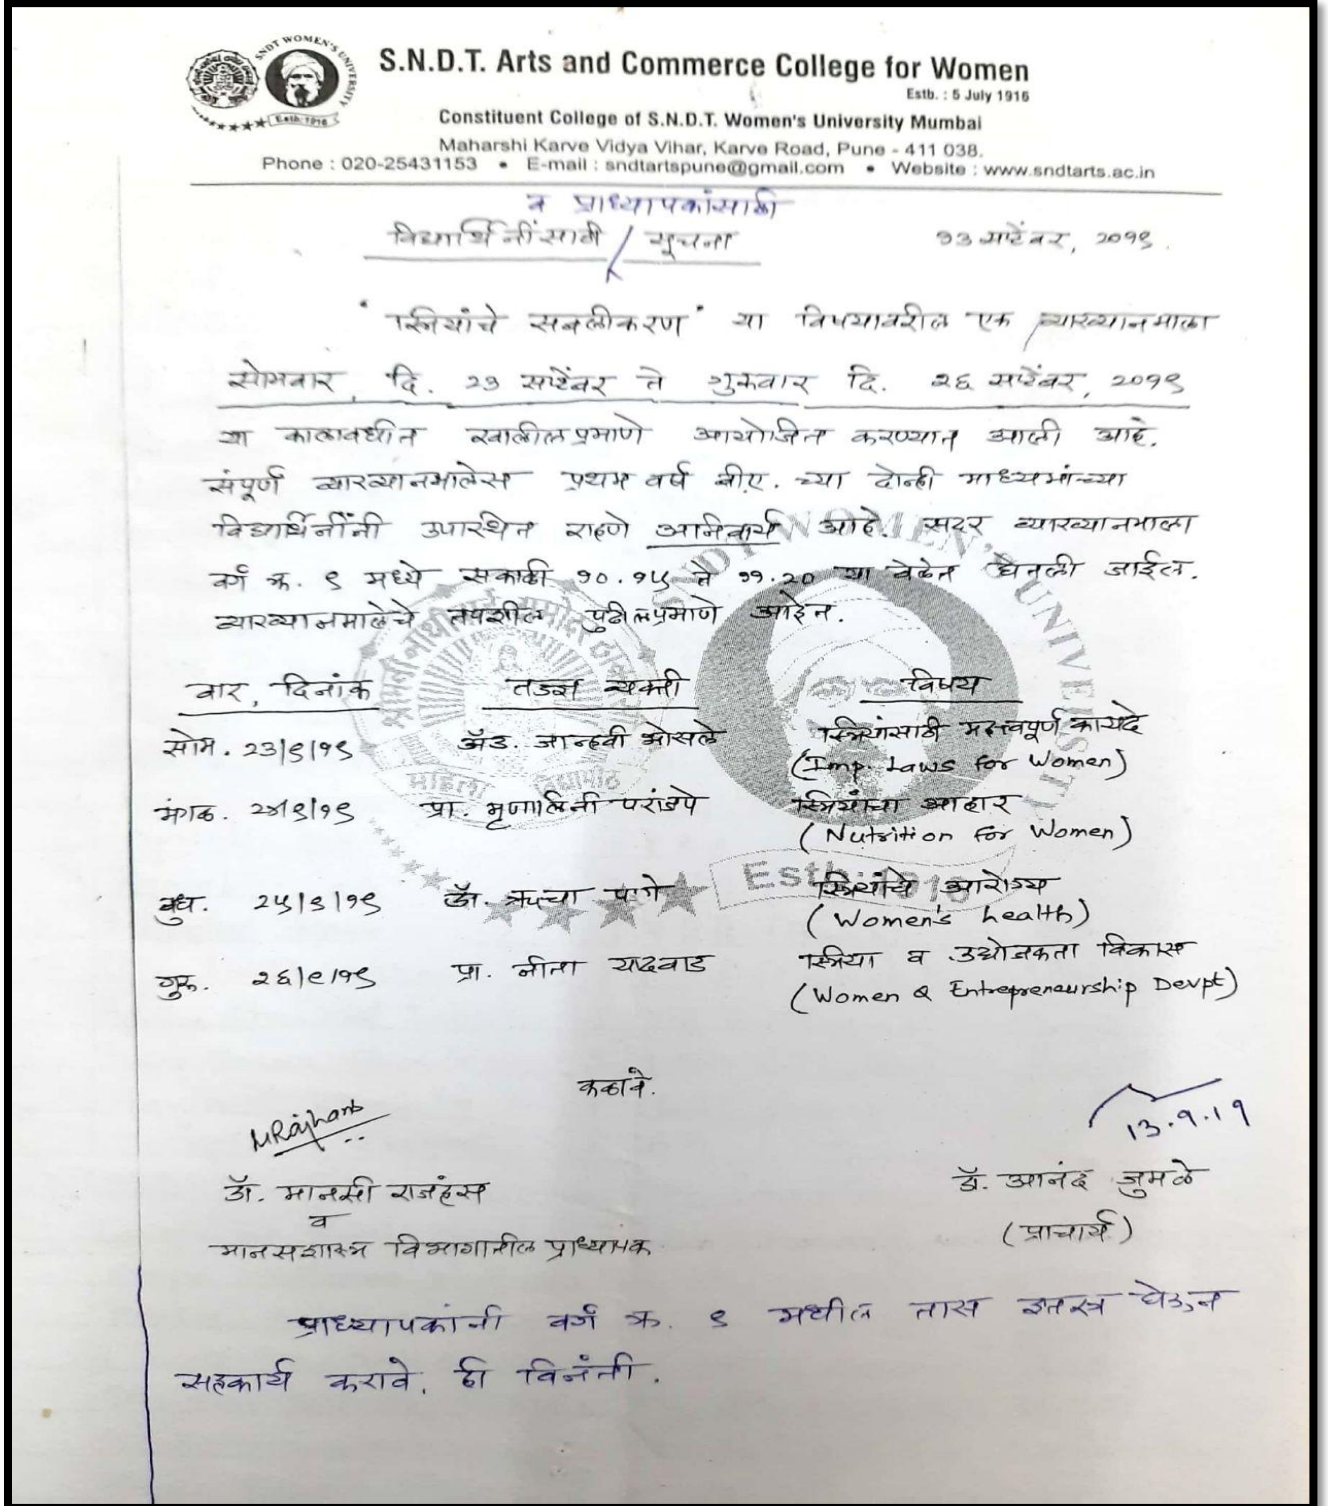 SNDT WOMEN'S UNIVERSITY
Estb. 1916
S.N.D.T. Arts and Commerce College for Women
Estb. : 5 July 1916
Constituent College of S.N.D.T. Women's University Mumbai
Maharshi Karve Vidya Vihar, Karve Road, Pune - 411 038.
Phone : 020-25431153 • E-mail : sndtartspune@gmail.com • Website : www.sndtarts.ac.in
व प्राध्यापकांसाठी
विद्यार्थिनींसाठी / सूचना १३ सप्टेंबर, २०१९.
'स्त्रियांचे सबलीकरण' या विषयावरील एक व्याख्यानमाला
सोमवार, दि. २३ सप्टेंबर ते गुरुवार दि. २६ सप्टेंबर, २०१९
या कालावधीत खालीलप्रमाणे आयोजित करण्यात आली आहे.
संपूर्ण व्याख्यानमालेस प्रथम वर्ष बीए. च्या दोन्ही माध्यमांच्या
विद्यार्थिनींनी उपस्थित राहणे अनिवार्य आहे. सदर व्याख्यानमाला
वर्ग क्र. ९ मध्ये सकाळी १०.१५ ते ११.२० या वेळेत घेतली जाईल.
व्याख्यानमालेचे तपशील पुढीलप्रमाणे आहेत.
वार, दिनांक तज्ज्ञ व्यक्ती विषय
सोम. २३/९/१९ ॲड. जान्हवी भोसले स्त्रियांसाठी महत्त्वपूर्ण कायदे
(Imp. Laws for Women)
मंगळ. २४/९/१९ प्रा. मृणालिनी परांजपे स्त्रियांचा आहार
(Nutrition for Women)
बुध. २५/९/१९ डॉ. ऋच्चा पागे स्त्रियांचे आरोग्य
(Women's health)
गुरु. २६/९/१९ प्रा. नीता यादवाड स्त्रिया व उद्योजकता विकास
(Women & Entrepreneurship Devpt)
कळावे.
MRajhans
13.9.19
डॉ. मानसी राजहंस डॉ. आनंद जुमळे
व
मानसशास्त्र विभागातील प्राध्यापक (प्राचार्य)
प्राध्यापकांनी वर्ग क्र. ९ मधील तास इतरत्र घेऊन
सहकार्य करावे, ही विनंती.